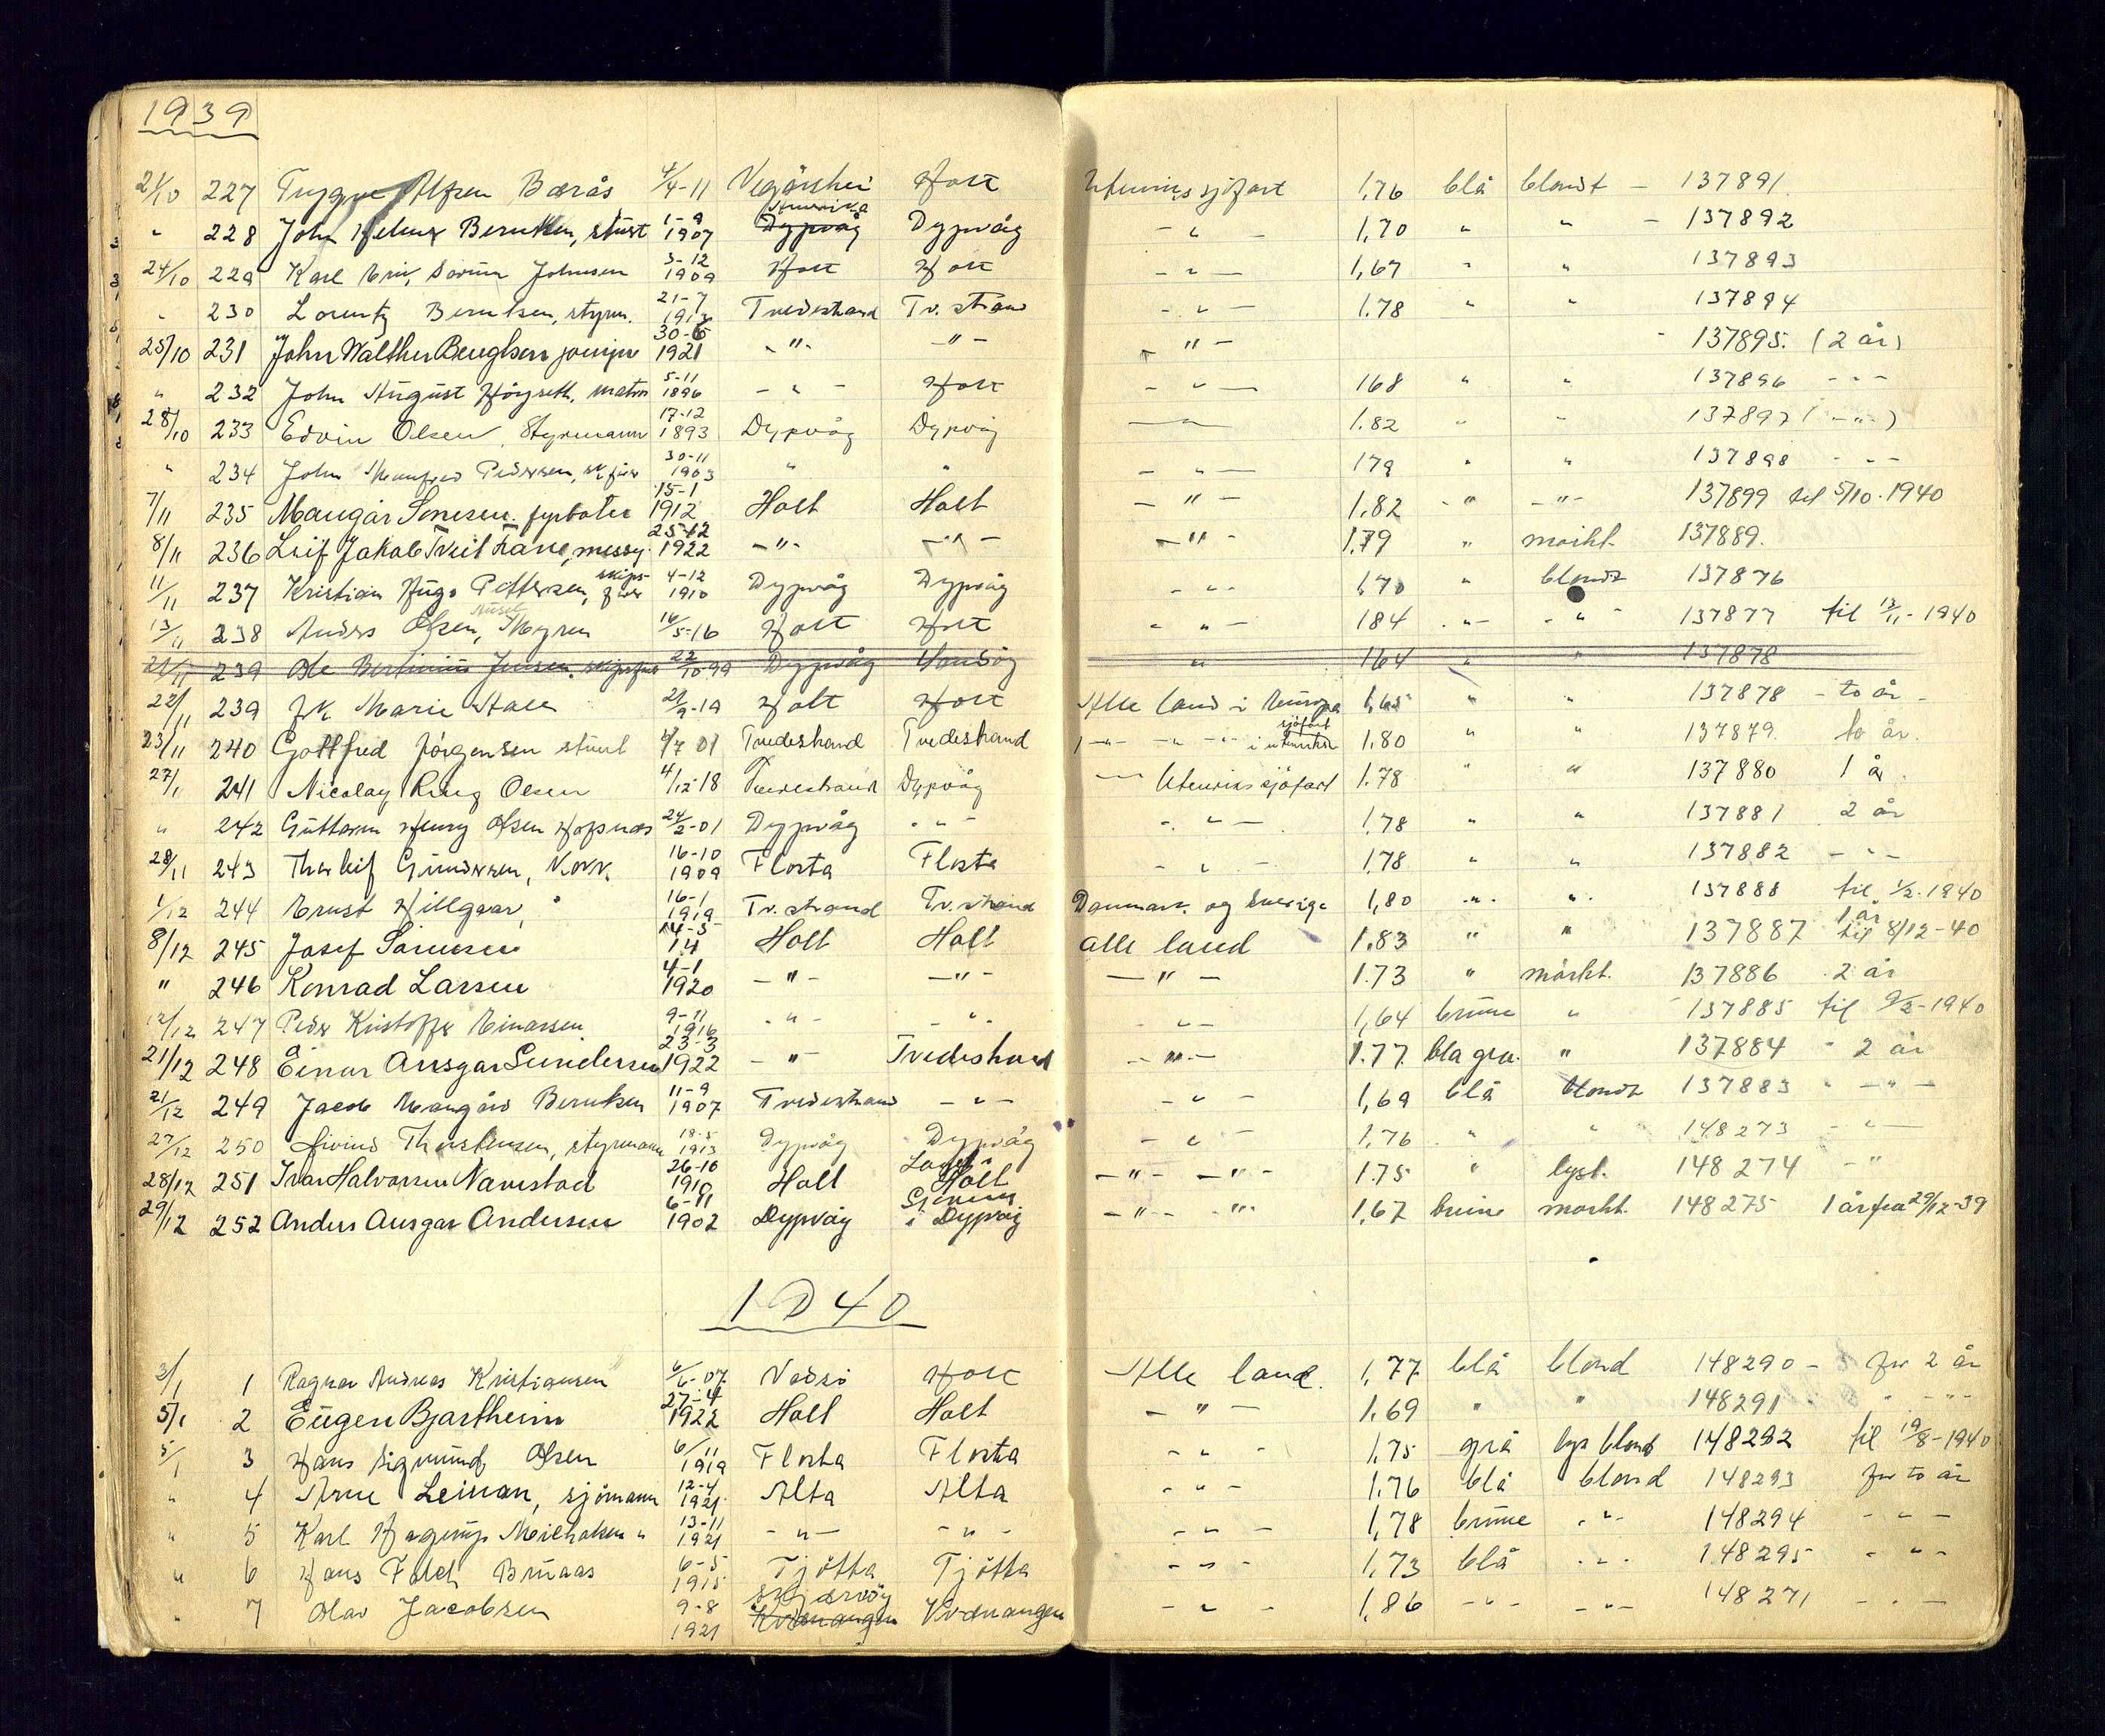 1939
21/10 227 Trygve Alfsen Bærås 4/4-11 Vegårshei Holt Utenrikssjøfart 1,76 blå blondt - 137891
" 228 John Helmer Berntsen, stuert 1-9 1907 Amerika Dypvåg Dypvåg - " - 1,70 " " - 137892
24/10 229 Karl Johnsen 3-12 1909 Holt Holt - " - 1,67 " " 137893
" 230 Lorentz Berntsen, styrm. 21-7 Tvedestrand Tv. strand - " - 1.78 " " 137894
25/10 231 John Walther Bengtsen 30-6 1921 - " - - " - - " - - 137895. (2 år)
" 232 John August matros 5-11 1896 - " - Holt - " - 168 " " 137896 - " -
28/10 233 Edvin Olsen, Styrmann 17-12 1893 Dypvåg Dypvåg - " - 1.82 " " 137897 (- " -)
" 234 John Manfred Pedersen, 30-11 1903 " " - " - 179 " " 137898 - " -
7/11 235 Mangår Sonesen. fyrbøter 15-1 1912 Holt Holt - " - 1.82 - " - " - 137899 til 5/10.1940
8/11 236 Leif Jakob Tveit messg. 25-12 1922 - " - - " - - " - 1.79 " mørkt. 137889.
11/11 237 Kristian Hugo Pettersen, skips- fører 4-12 1910 Dypvåg Dypvåg - " - 1,70 " blondt 137876
13/11 238 Anders Olsen, Myren 16/5-16 Holt Holt - " - 184 - " - - " - 137877 til 13/11-1940
21/11 239 Ole Bertinius Jensen, skipsfører 22/10-99 Dypvåg Sandøy " 164 " " 137878
22/11 239 frk Marie 21/9-19 Holt Holt Alle land i Europa 1,65 " " 137878 - to år -
23/11 240 Gottfred Jörgensen stuert 4/7 01 Tvedestrand Tvedestrand - " - - " - i utenriks sjøfart 1.80 " " 137879 to år.
27/11 241 Nicolay Ring Olsen 4/12-18 Tvedestrand Dypvåg - " - Utenriks sjøfart 1.78 " " 137880 1 år
" 242 Guttorm Henry Olsen Hopsnes 24/2-01 Dypvåg - " - - " - 1,78 " " 137881 2 år
28/11 243 Thorleif Gundersen, 16-10 1909 Flosta Flosta - " - 1,78 " " 137882 - " -
1/12 244 Ernst " 16-1 1919 Tv. strand Tv. strand Danmark og Sverige 1,80 - " - " 137888 til 1/2-1940
8/12 245 Josef Sørensen 14-5 14 Holt Holt Alle land 1.83 " " 137887 1 år til 8/12-40
" 246 Konrad Larsen 4-1 1920 - " - - " - - " - 1.73 " mörkt. 137886 2 år
12/12 247 Peder Kristoffer Einarsen 9-11 1916 - " - - " - - " - 1,64 brune " 137885 til 9/2-1940
21/12 248 Einar Ansgar Gundersen 23-3 1922 - " - Tvedestrand - " - 1.77. blå grå. " 137884 " 2 år
21/12 249 Jacob Berntsen 11-9 1907 Tvedestrand - " - - " - 1,69 blå blondt 137883 " - " -
27/12 250 Eivind Thorstensen, styrmann 18-5 1913 Dypvåg Dypvåg - " - 1,76 " " 148273 - " -
28/12 251 Ivar Halvorsen Navestad 26-10 1910 Holt Holt - " - - " - 1.75 " lyst. 148274 - "
29/12 252 Anders Ansgar Andersen 6-11 1902 Dypvåg i Dypvåg - " - - " - 1,67 brune mørkt. 148275 1 år fra 29/12-39
1940
3/1 1 Ragnar Andreas Kristiansen 6/6-07 Vadsö Holt Alle land. 1,77 blå blond 148290 - for 2 år
5/1 2 Eugen Bjartheim 27-4 1922 Holt Holt - " - 1.69 " " 148291 " - " -
5/1 3 Hans Sigmund Olsen 6/11 1919 Flosta Flosta - " - 1,75 grå lys blond 148292 til 19/8-1940
" 4 Arne Leinan, sjömann 12-4 1921 Alta Alta - " - 1.76 blå blond 148293 for to år
" 5 Karl Hagerup " 13-11 1921 - " - - " - - " - 1,78 brune - " - 148294 - " -
" 6 Hans Falch Brunes 6-5 1915 Tjötta Tjötta - " - 1,73 blå - " - 148295 - " -
" 7 Olav Jacobsen 9-8 1921 Skjervöy Kvænangen Kvænangen - " - 1,86 - " - - " - 148271 - " -